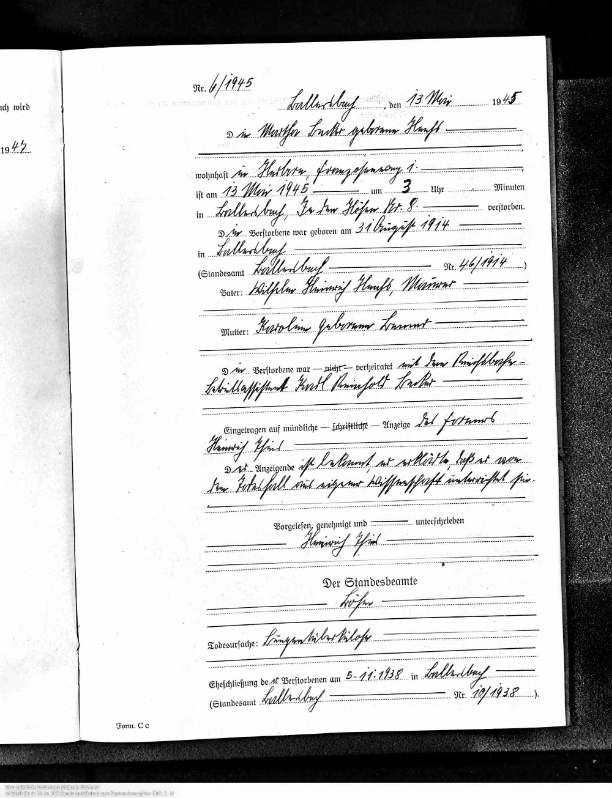 uch wird
1947
Nr. 6/1945
Ballersbach, den 13 Mai 1945
Die Martha Becker geborene
wohnhaft in Herborn,
ist am 13 Mai 1945 um 3 Uhr Minuten
in Ballersbach, In den Höfen Nr. 8. verstorben.
Die Verstorbene war geboren am 31 August 1914
in Ballersbach
(Standesamt Ballersbach Nr. 46/1914)
Vater: Wilhelm Heinrich Maurer
Mutter: Karoline geborene
Die Verstorbene war — nicht — verheiratet mit dem
Karl Reinhold Becker
Eingetragen auf mündliche — schriftliche — Anzeige des
Heinrich
Der Anzeigende ist bekannt, er erklärte, daß er von
dem Todesfall aus eigener Wissenschaft unterrichtet sei.
Vorgelesen, genehmigt und unterschrieben
Heinrich
Der Standesbeamte
Todesursache: Lungentuberkulose
Eheschließung der Verstorbenen am 5.11.1938 in Ballersbach
(Standesamt Ballersbach Nr. 10/1938).
Form. C c